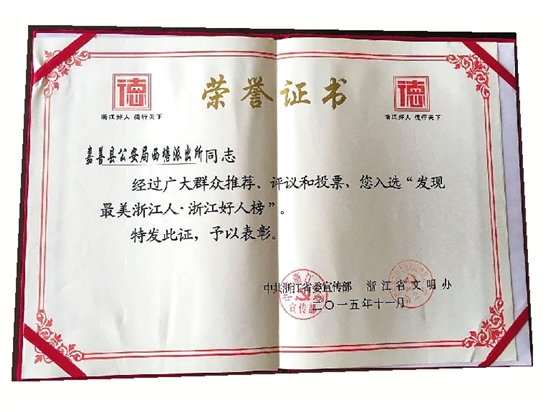 德
浙江好人 德行天下
荣誉证书
德
浙江好人 德行天下
嘉善县公安局西塘派出所同志
经过广大群众推荐、评议和投票，您入选“发现
最美浙江人·浙江好人榜”。
特发此证，予以表彰。
中共浙江省委宣传部 浙江省文明办
二〇一五年十一月
宣传部